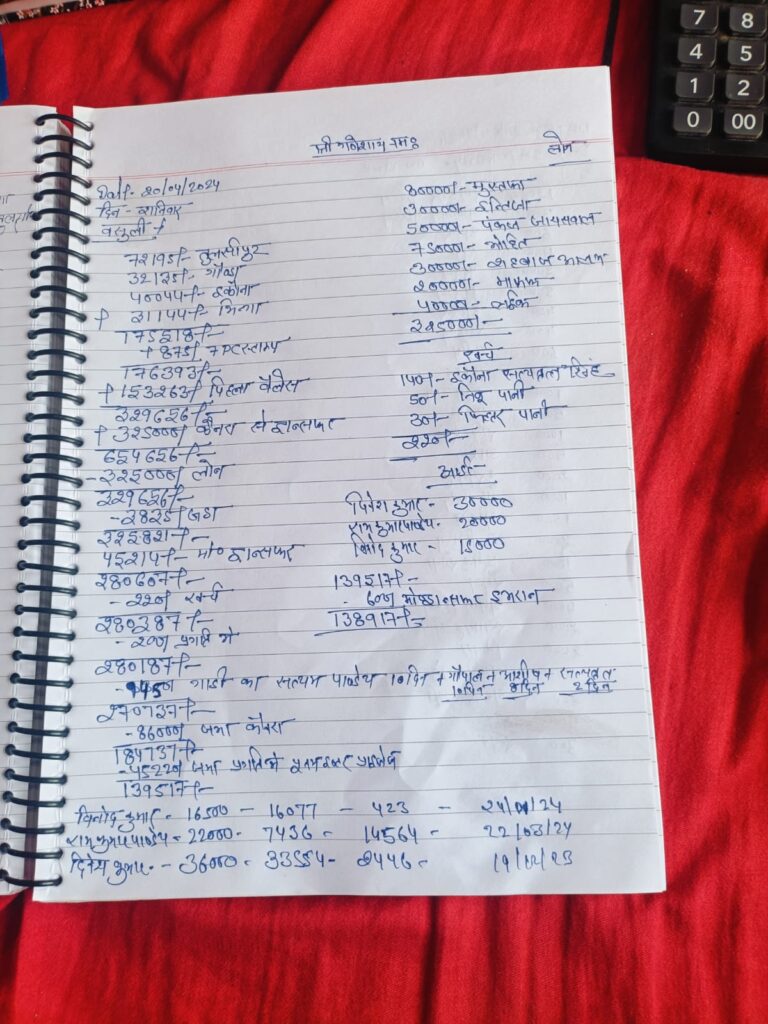 श्री गणेशाय नमः
Date - 20/04/2024
दिन - शनिवार
वसुली -
72195/- तुलसीपुर
32135/- गोण्डा
40044/- इकौना
+ 31144/- भिनगा
175518/-
+ 875/- 7 PC स्टाम्प
176393/-
+ 153263/- पिछला बैलेंस
329656/-
+ 325000/- केनरा से ट्रान्सफर
654656/-
- 325000/- लोन
329656/-
- 2835/- जमा
325821/-
45214/- मो० ट्रान्सफर
280607/-
- 220/- खर्च
280387/-
- 200/- प्रगति मे
280187/-
- 9450/- गाडी का सत्यम पाण्डेय 10 दिन + गोपाल + आशीष + सत्यव्रत
10 दिन 8 दिन 2 दिन
270737/-
- 86000/- जमा केनरा
184737/-
- 45220/- जमा प्रगति मे
139517/-
लोन
80000/- मुस्तफा
30000/-
50000/- पंकज जायसवाल
75000/- मोहित
30000/- शहबाज आलम
20000/-
40000/-
325000/-
खर्च
140/- इकौना सत्यव्रत सिंह
50/- पानी
30/- फिल्टर पानी
220/-
दिनेश कुमार - 30000
राम कुमार पाण्डेय - 20000
विनोद कुमार - 15000
139517/-
- 600/- मो० ट्रान्सफर इमरान
138917/-
विनोद कुमार - 16500 - 16077 - 423 - 24/01/24
राम कुमार पाण्डेय - 22000 - 7436 - 14564 - 22/03/24
दिनेश कुमार - 36000 - 33554 - 2446 -
7 8
4 5
1 2
0 00